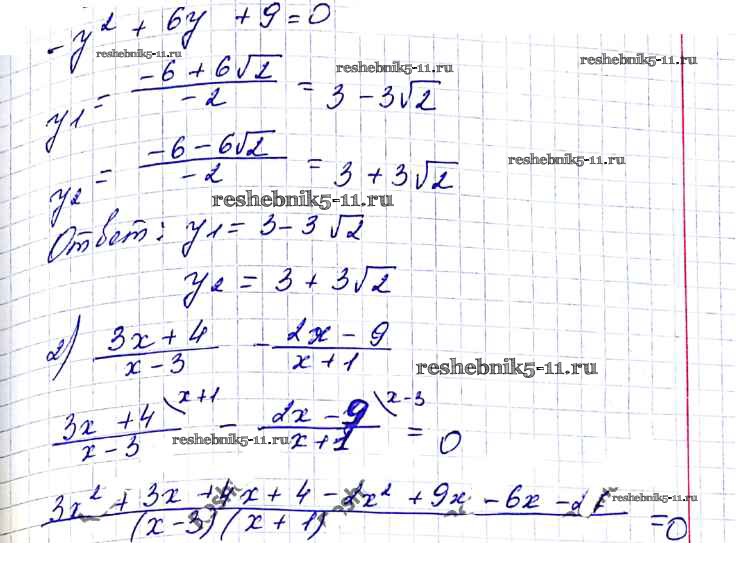 -y² + 6y + 9 = 0
resheb­nik5-11.ru resheb­nik5-11.ru
y1 = (-6 + 6√2)/(-2) = 3 - 3√2
resheb­nik5-11.ru
y2 = (-6 - 6√2)/(-2) = 3 + 3√2
resheb­nik5-11.ru
resheb­nik5-11.ru
Ответ: y1 = 3 - 3√2
y2 = 3 + 3√2
2) (3x + 4)/(x - 3) - (2x - 9)/(x + 1)
resheb­nik5-11.ru
(3x + 4)/(x - 3) \x+1 - (2x - 9)/(x + 1) \x-3 = 0
resheb­nik5-11.ru
(3x² + 3x + 4x + 4 - 2x² + 9x - 6x - 2)/((x - 3)(x + 1)) = 0
resheb­nik5-11.ru